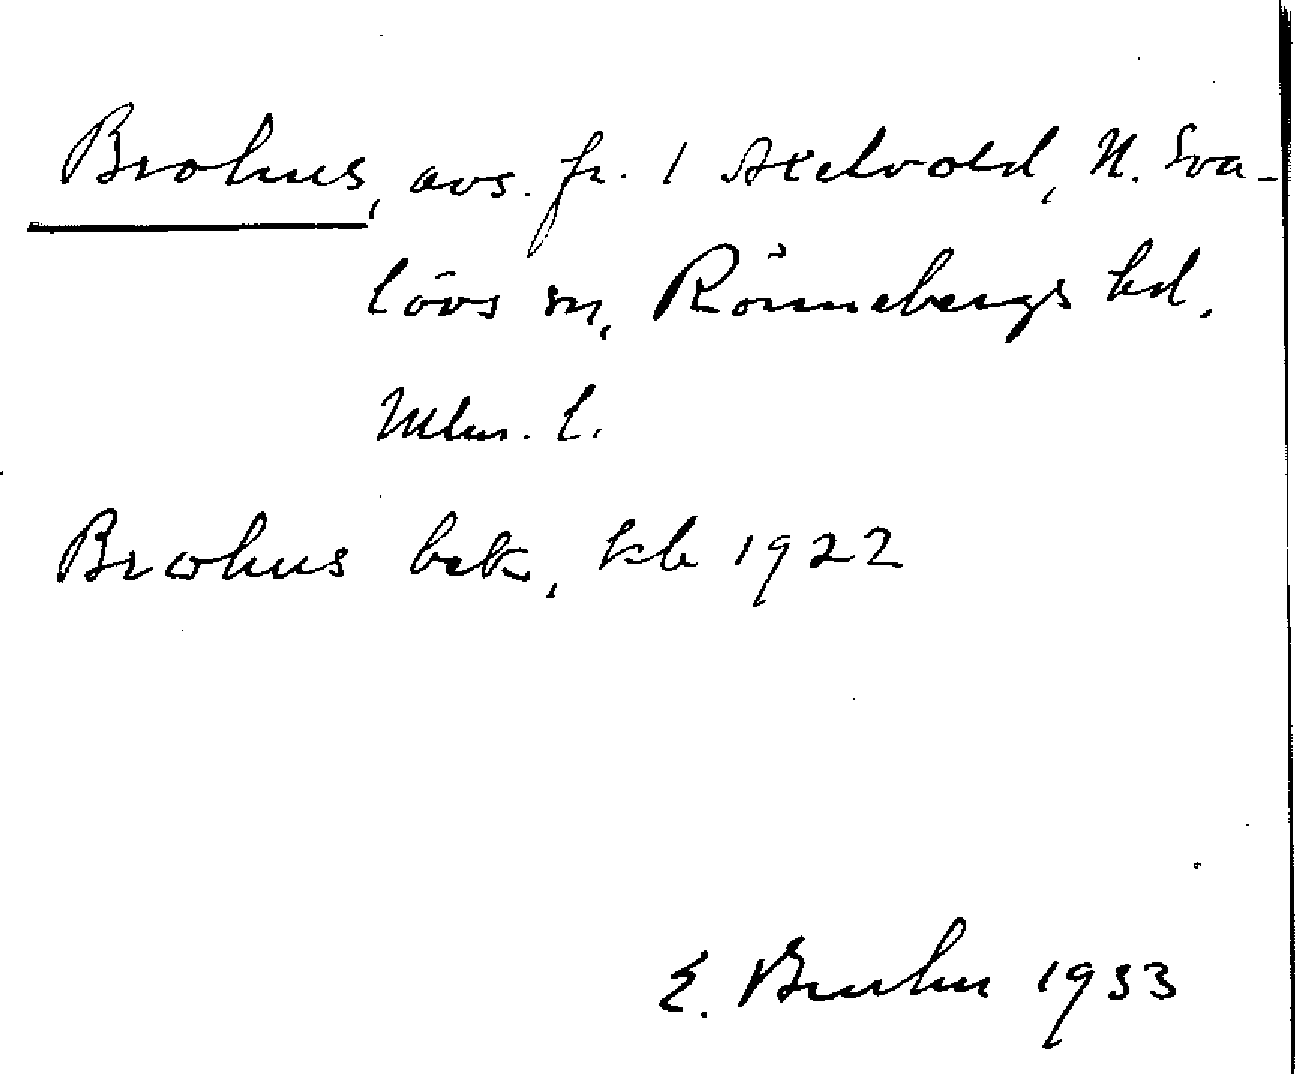 Brohus, avs. fr. 1 Axelvold, N. Sva-
lövs sn, Rönnebergs hd,
Mlm. l.
Brohus bek, kb 1922
E. Bruhn 1933